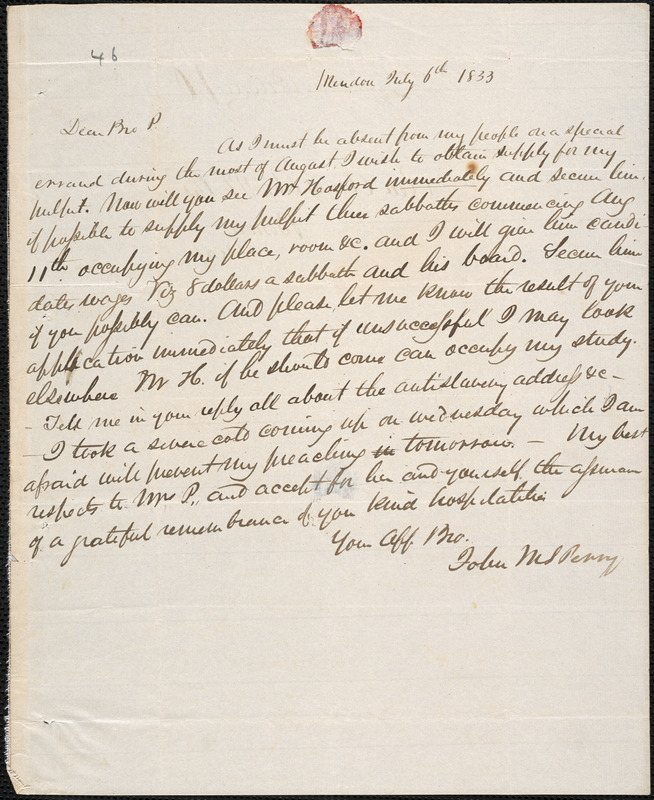 46
Mendon July 6th 1833
Dear Bro P.
As I must be absent from my people on a special
errand during the most of August I wish to obtain supply for my
pulpit. Now will you see Mr Hosford immediately and secure him,
if possible to supply my pulpit three sabbaths commencing Aug
11th occupying my place, room &c. and I will give him candi-
dates wages Viz 8 dollars a sabbath and his board. Secure him
if you possibly can. And please let me know the result of your
application immediately that if unsuccessful I may look
elsewhere Mr H. if he should come can occupy my study.
- Tell me in your reply all about the antislavery address &c -
- I took a severe cold coming up on wednesday which I am
afraid will prevent my preaching in tomorrow. - My best
respects to Mrs P. and accept for her and yourself the assurance
of a grateful remembrance of your kind hospitalities
Your Aff Bro.
John M S Perry